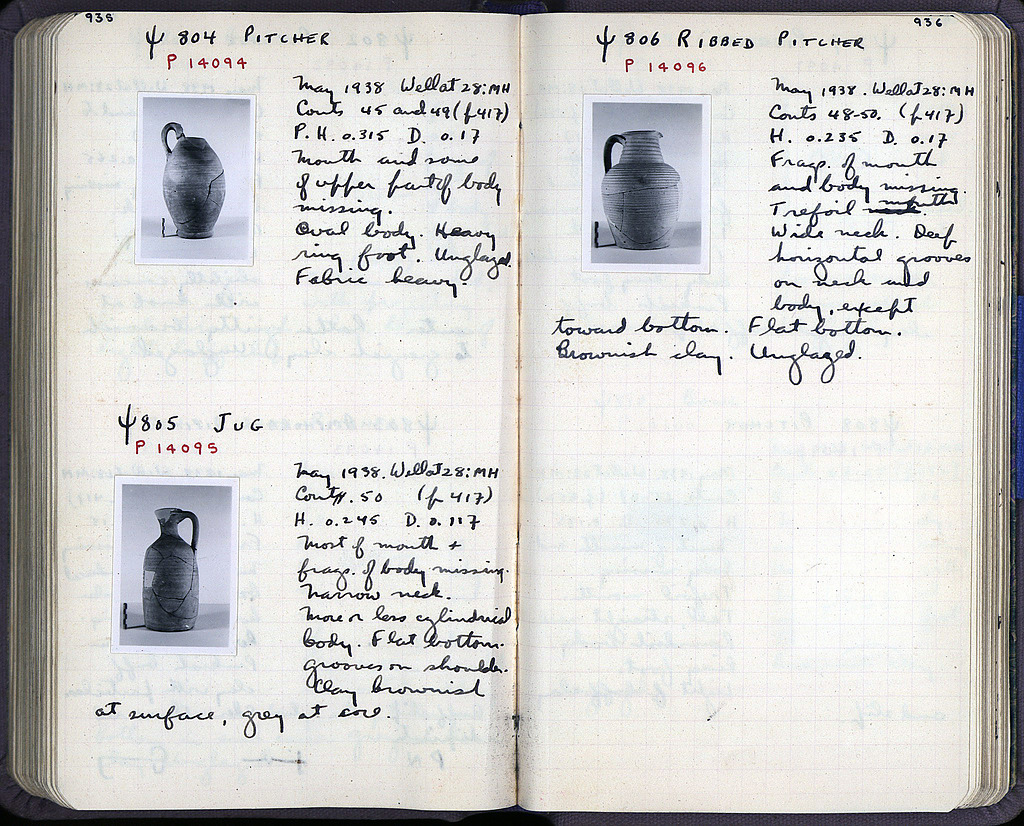 935
Ψ 804 PITCHER
P 14094
May 1938 Well at 28:MH
Conts 45 and 49 (p 417)
P. H. 0.315 D. 0.17
Mouth and some
of upper part of body
missing.
Oval body. Heavy
ring foot. Unglazed.
Fabric heavy.
Ψ 805 JUG
P 14095
May 1938. Well at 28:MH
Cont. 50 (p 417)
H. 0.245 D. 0.117
Most of mouth +
frags. of body missing.
Narrow neck.
More or less cylindrical
body. Flat bottom.
grooves on shoulder.
Clay brownish
at surface, grey at core.
936
Ψ 806 RIBBED PITCHER
P 14096
May 1938. Well at 28:MH
Conts 48-50. (p 417)
H. 0.235 D. 0.17
Frags. of mouth
and body missing.
Trefoil neck. mouth
Wide neck. Deep
horizontal grooves
on neck and
body, except
toward bottom. Flat bottom.
Brownish clay. Unglazed.